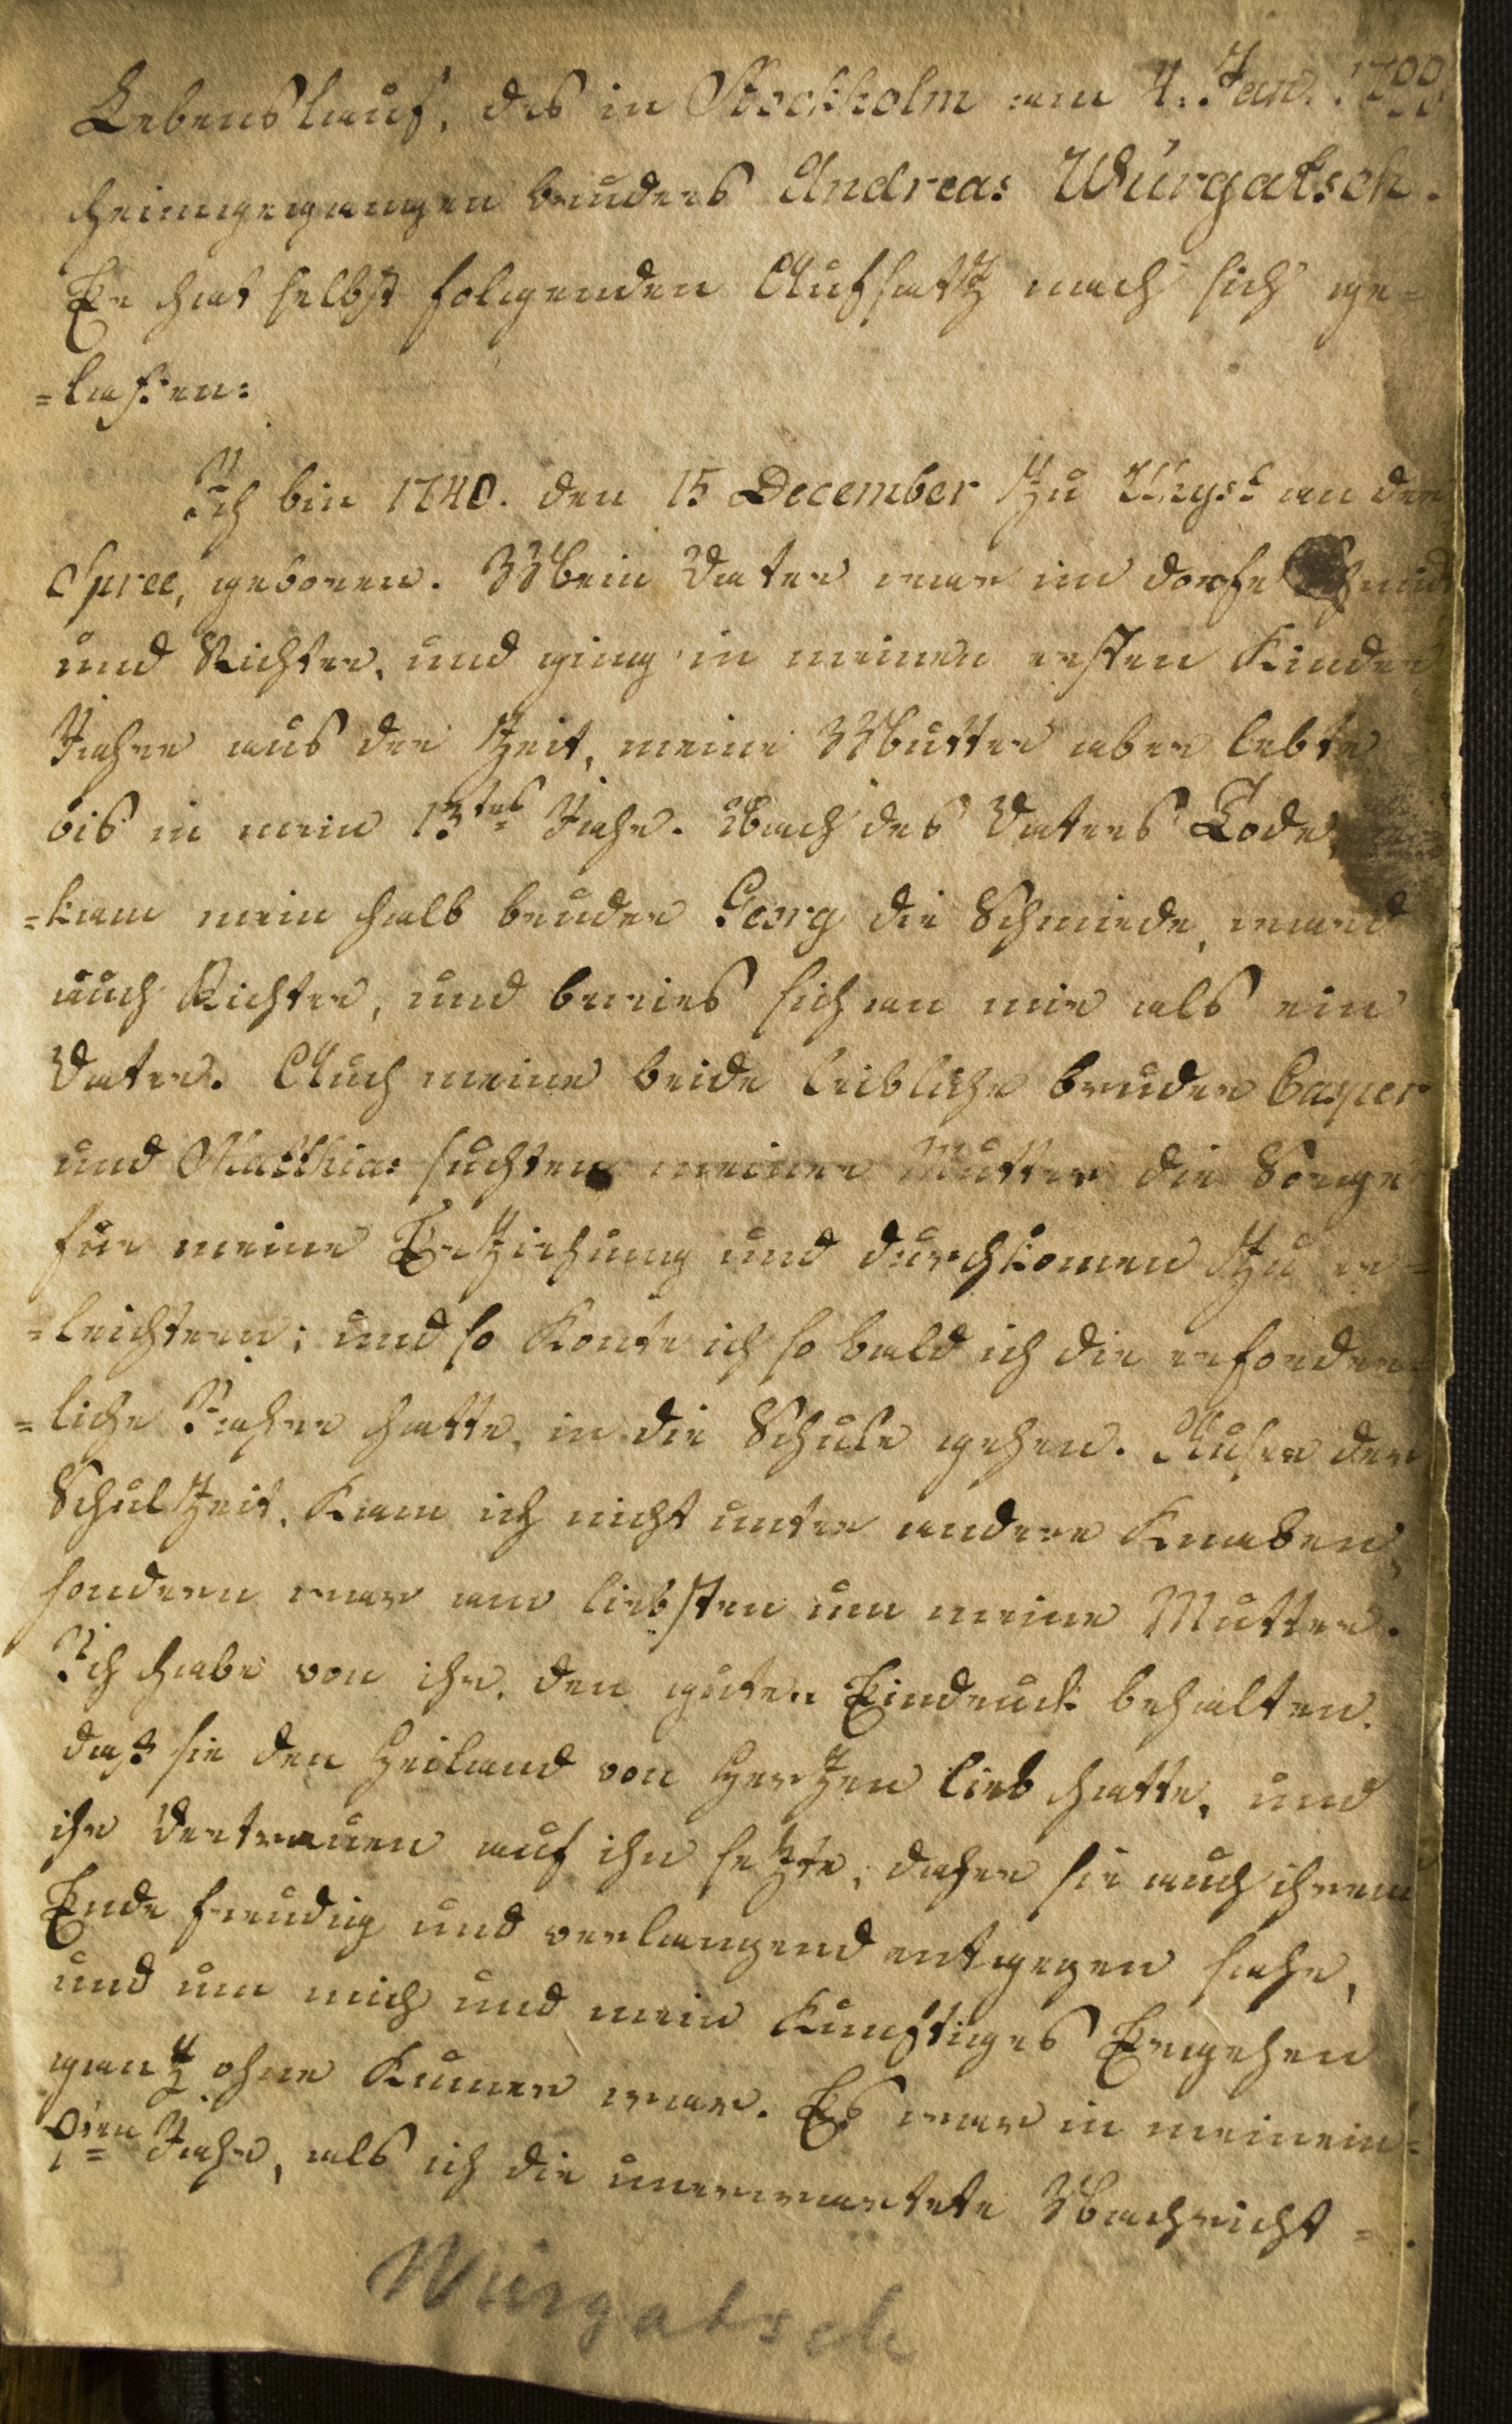 Lebenslauf, des in Stockholm am 4. Jan.
heimgegangen bruders Andreas Würgatsch.
Er hat selbst folgenden Aufsatz nach sich ge=
=laßen:
Ich bin 1740. den 15 December zu Uhyst an der
Spree, geboren. Mein Vater war im dorfe Schmid
und Richter, und ging in meinen ersten Kinder
Jahre aus der Zeit, meine Mutter aber lebte
bis in mein 13tes Jahr. Nach des Vaters Tode,
=kam mein halb bruder Georg die Schmiede, ward
auch Richter, und bewies sich an mir als ein
Vater. Auch meine beide leibliche bruder Casper
und Matthias suchten meiner Mutter die Sorge
für meine Erziehung und durchkomen zu er=
=leichtern; und so konte ich so bald ich die erforder=
=liche Jahre hatte, in die Schule gehen. Auser der
Schulzeit, kam ich nicht unter andere Knaben,
sondern war am liebsten um meine Mutter.
Ich habe von ihr, den guten Eindruck behalten,
daß sie den Heiland von Herzen lieb hatte, und
ihr Vertrauen auf ihn setzte, daher sie auch ihrem
Ende freudig und verlangend entgegen sahe,
und um mich und mein künftiges Ergehen
gantz ohne Kumer war. Es war in meinem
Jahr, als ich die unerwartete Nachricht =
Würgatsch